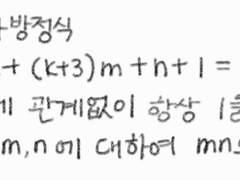 방정식
+ (k+3)m + n + 1 =
관계없이 항상 1을
m, n 에 대하여 mn